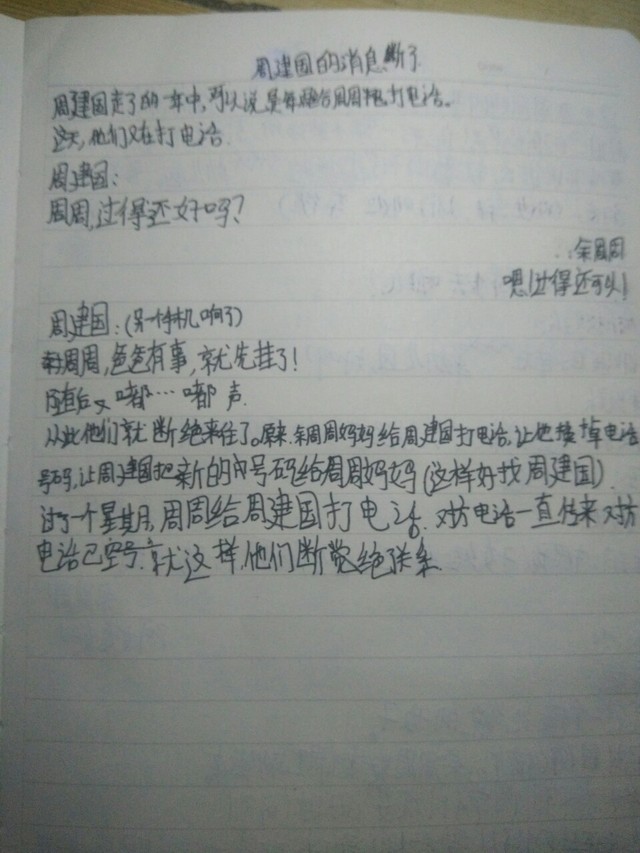 周建国的消息断了
周建国走了的一年中,可以说是每晚给周周打电话。
这天,他们又在打电话.
周建国:
周周,过得还好吗?
:余周周
嗯!过得还可以!
周建国:(另一个手机响了)
周周,爸爸有事,就先挂了!
随后又嘟…嘟声.
从此他们就断绝来往了。原来.余周周妈妈给周建国打电话,让他换掉电话
号码,让周建国把新的号码给周周妈妈(这样好找周建国)
过了一个星期,周周给周建国打电话.对方电话一直传来对方
电话已空号.就这样,他们断绝联系.